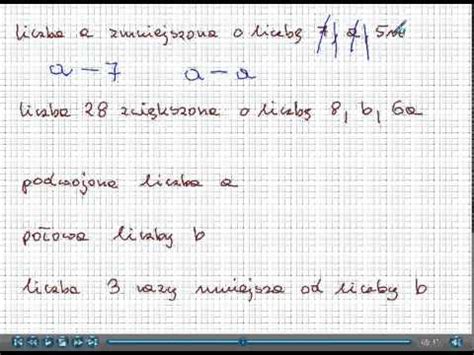 liczba a zmniejszona o liczbę 7, a, 5
a - 7 a - a
liczba 28 zwiększona o liczbę 8, b, 6a
podwojona liczba a
połowa liczby b
liczba 3 razy mniejsza od liczby b